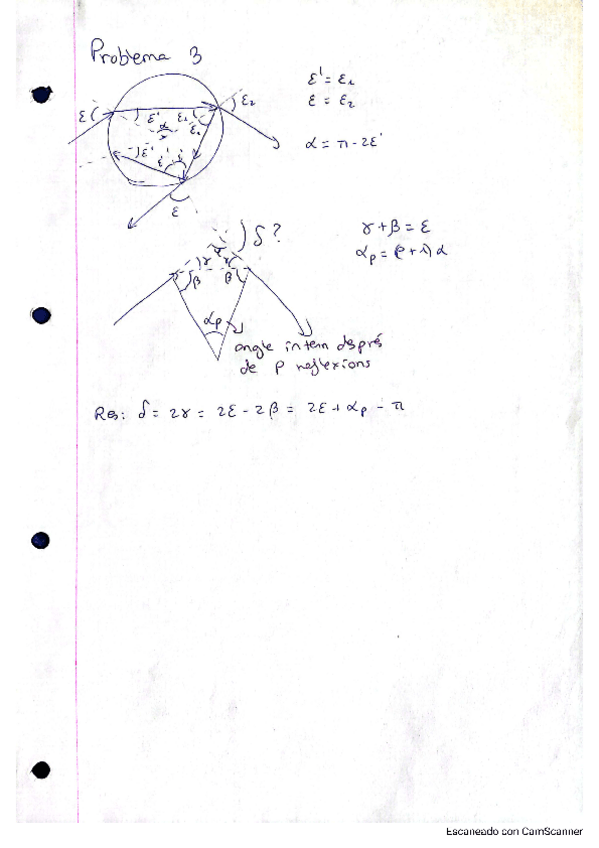 Problema 3
ε' = ε₁
ε = ε₂
α = π - 2ε'
ε
ε'
α
ε₁
ε₂
ε₁
ε'
ε'
ε'
ε
δ?
γ + β = ε
αₚ = (p+1)α
γ
γ
β
β
αₚ
angle intern després
de p reflexions
Res: δ = 2γ = 2ε - 2β = 2ε + αₚ - π
Escaneado con CamScanner